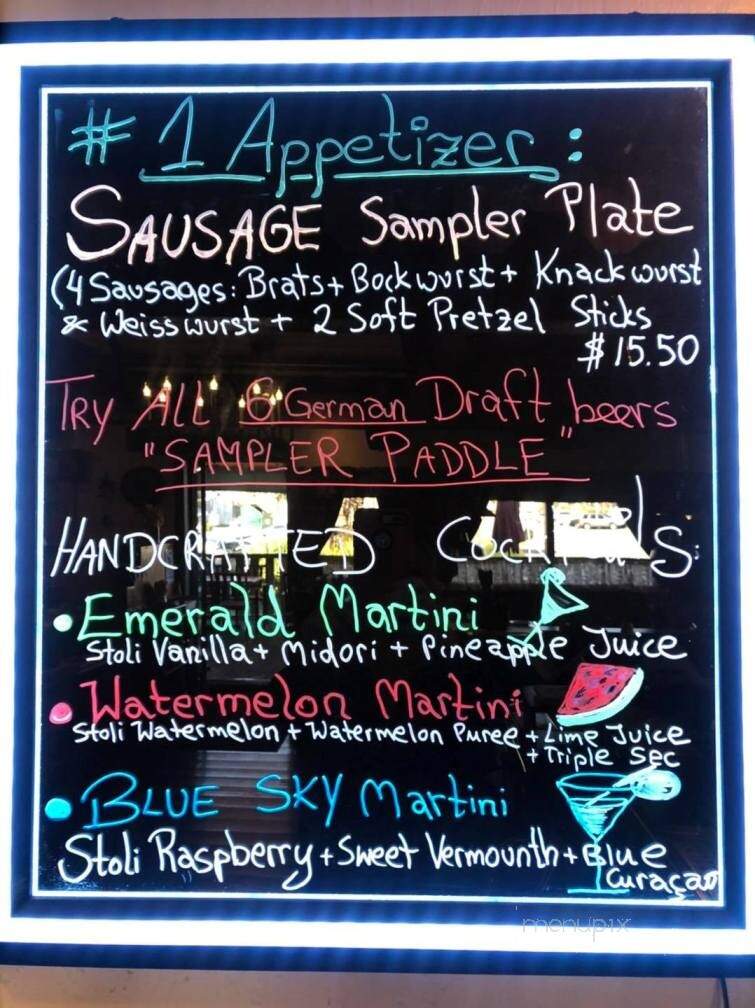 # 1 Appetizer:
SAUSAGE Sampler Plate
(4 Sausages: Brats + Bockwurst + Knackwurst
& Weisswurst + 2 Soft Pretzel Sticks
$15.50
TRY ALL 6 German Draft beers
"SAMPLER PADDLE"
HANDCRAFTED COCKTAILS:
• Emerald Martini
Stoli Vanilla + Midori + Pineapple Juice
• Watermelon Martini
Stoli Watermelon + Watermelon Puree + Lime Juice
+ Triple Sec
• BLUE SKY Martini
Stoli Raspberry + Sweet Vermounth + Blue
Curaçao
menupix